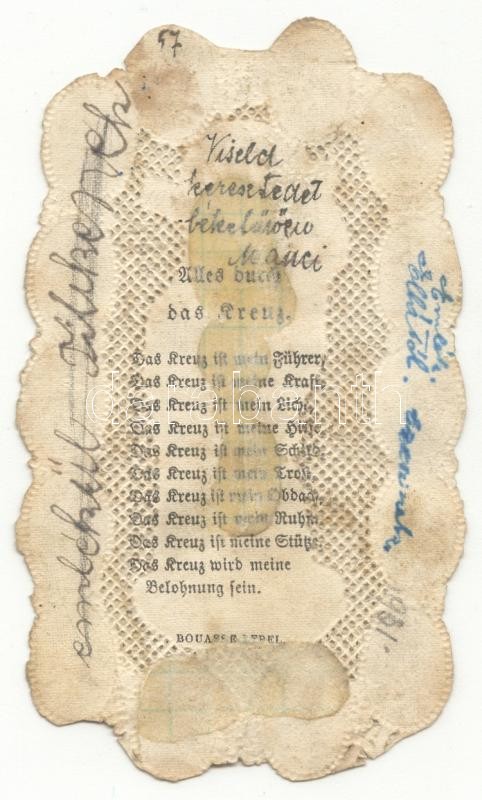 57
Viseld
keresztedet
béketürően
Manci
Alles durch
das Kreuz.
Das Kreuz ist mein Führer,
Das Kreuz ist meine Kraft,
Das Kreuz ist mein Licht,
Das Kreuz ist meine Hülfe,
Das Kreuz ist mein Schild,
Das Kreuz ist mein Trost,
Das Kreuz ist mein Obdach,
Das Kreuz ist mein Ruhm,
Das Kreuz ist meine Stütze,
Das Kreuz wird meine
Belohnung sein.
BOUASSE LEBEL.
1981.
darabanth